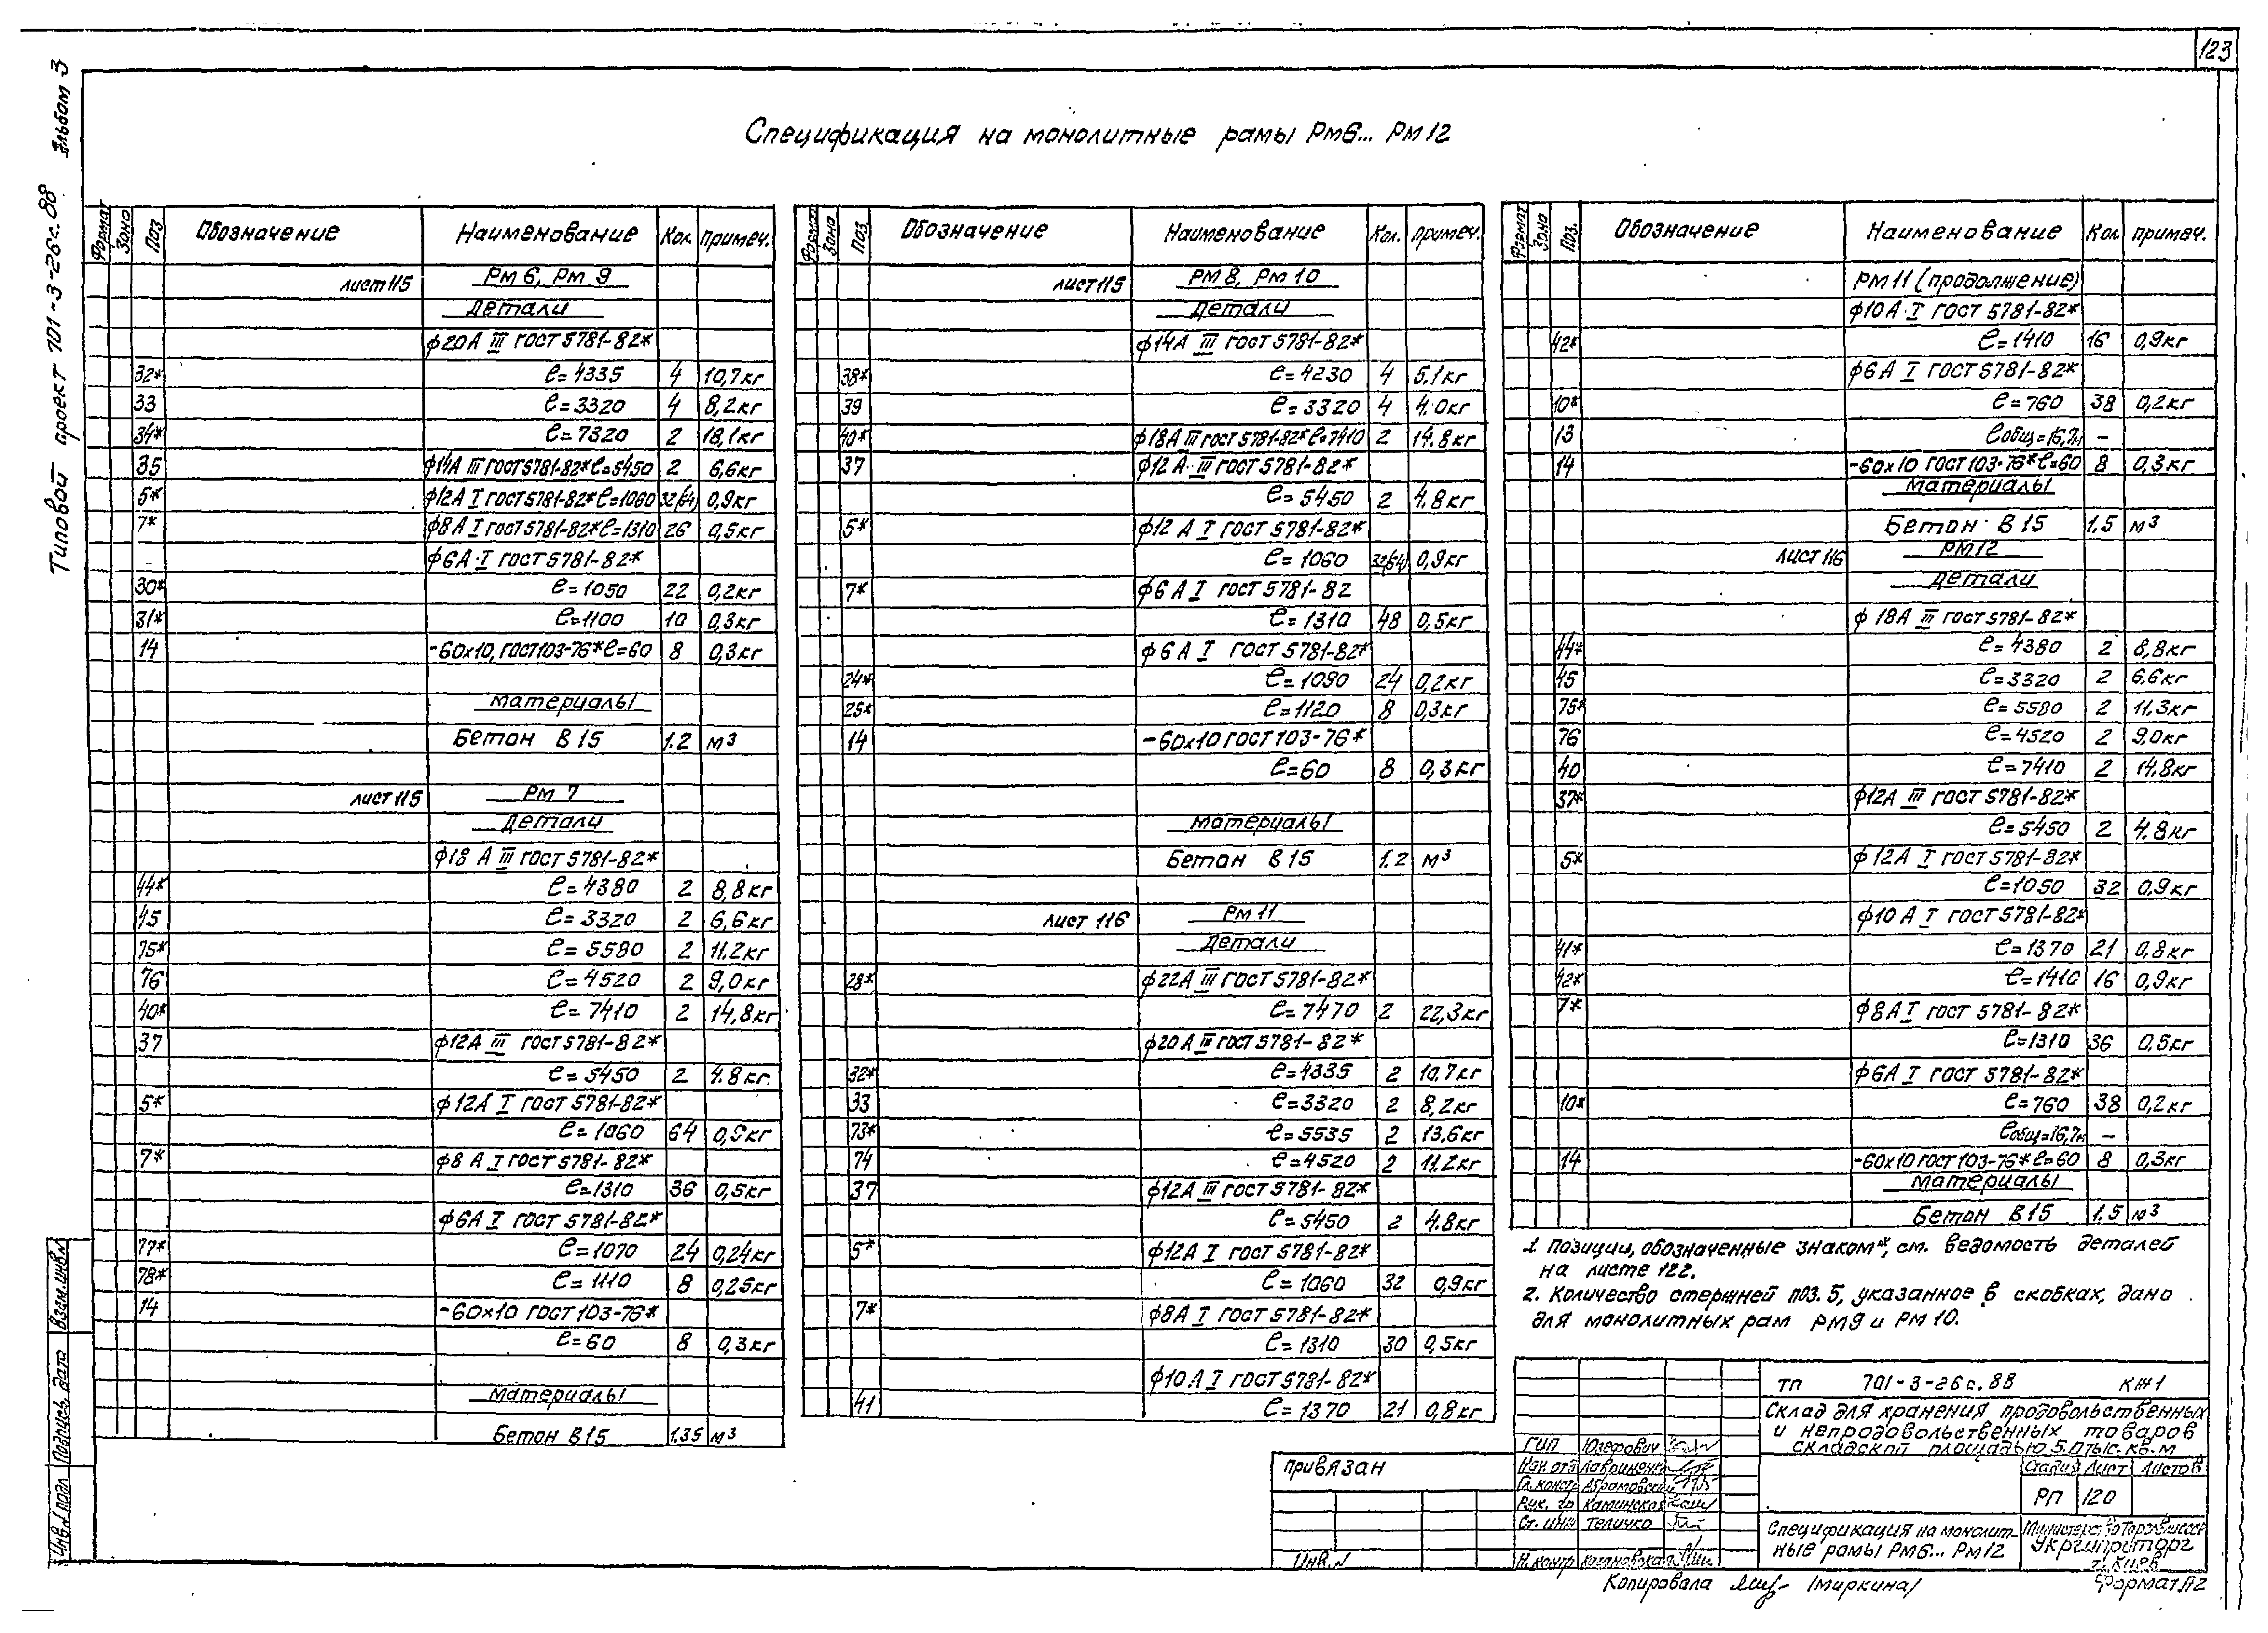 123
Типовой проект 701-3-26с.88 Альбом 3
Спецификация на монолитные рамы Рм6... Рм12
Формат Зона Поз Обозначение Наименование Кол. Примеч.
лист 115 Рм 6, Рм 9
Детали
ф20А III ГОСТ 5781-82*
32* ℓ=4335 4 10,7кг
33 ℓ=3320 4 8,2кг
34* ℓ=7320 2 18,1кг
35 ф14А III ГОСТ 5781-82* ℓ=5450 2 6,6кг
5* ф12А I ГОСТ 5781-82* ℓ=1060 32(64) 0,9кг
7* ф8А I ГОСТ 5781-82* ℓ=1310 26 0,5кг
ф6А I ГОСТ 5781-82*
30* ℓ=1050 22 0,2кг
31* ℓ=1100 10 0,3кг
14 -60х10, ГОСТ 103-76* ℓ=60 8 0,3кг
материалы
Бетон В 15 1.2 м³
лист 115 Рм 7
Детали
ф18 А III ГОСТ 5781-82*
44* ℓ=4380 2 8,8кг
45 ℓ=3320 2 6,6кг
75* ℓ=5580 2 11.2кг
76 ℓ=4520 2 9,0кг
40* ℓ=7410 2 14,8кг
37 ф12А III ГОСТ 5781-82*
ℓ=5450 2 4.8кг
5* ф12А I ГОСТ 5781-82*
ℓ=1060 64 0,9кг
7* ф8 А I ГОСТ 5781-82*
ℓ=1310 36 0,5кг
ф6А I ГОСТ 5781-82*
77* ℓ=1070 24 0,24кг
78* ℓ=1110 8 0,25кг
14 -60х10 ГОСТ 103-76*
ℓ=60 8 0,3кг
материалы
Бетон В 15 1.35 м³
Формат Зона Поз Обозначение Наименование Кол. примеч.
лист 115 Рм 8, Рм 10
Детали
ф14А III ГОСТ 5781-82*
38* ℓ=4230 4 5.1кг
39 ℓ=3320 4 4.0кг
40* ф18А III ГОСТ 5781-82* ℓ=7410 2 14.8кг
37 ф12 А III ГОСТ 5781-82*
ℓ=5450 2 4.8кг
5* ф12 А I ГОСТ 5781-82*
ℓ=1060 32(64) 0,9кг
7* ф6 А I ГОСТ 5781-82
ℓ=1310 48 0,5кг
ф6 А I ГОСТ 5781-82*
24* ℓ=1090 24 0,2кг
25* ℓ=1120 8 0,3кг
14 -60х10 ГОСТ 103-76*
ℓ=60 8 0,3кг
материалы
Бетон В 15 1.2 м³
лист 116 Рм 11
Детали
28* ф22А III ГОСТ 5781-82*
ℓ=7470 2 22,3кг
ф20А III ГОСТ 5781-82*
32* ℓ=4335 2 10.7кг
33 ℓ=3320 2 8,2кг
73* ℓ=5535 2 13.6кг
74 ℓ=4520 2 11.2кг
37 ф12А III ГОСТ 5781-82*
ℓ=5450 2 4.8кг
5* ф12А I ГОСТ 5781-82*
ℓ=1060 32 0,9кг
7* ф8А I ГОСТ 5781-82*
ℓ=1310 30 0,5кг
ф10А I ГОСТ 5781-82*
41 ℓ=1370 21 0,8кг
Формат Зона Поз. Обозначение Наименование Кол примеч.
Рм 11 (продолжение)
ф10А I ГОСТ 5781-82*
42* ℓ=1410 16 0,9кг
ф6А I ГОСТ 5781-82*
10* ℓ=760 38 0,2кг
13 ℓобщ=16,7м –
14 -60х10 ГОСТ 103-76* ℓ=60 8 0,3кг
материалы
Бетон В 15 1.5 м³
лист 116 Рм 12
Детали
ф 18А III ГОСТ 5781-82*
44* ℓ=4380 2 8,8кг
45 ℓ=3320 2 6.6кг
75* ℓ=5580 2 11.3кг
76 ℓ=4520 2 9,0кг
40 ℓ=7410 2 14,8кг
37* ф12А III ГОСТ 5781-82*
ℓ=5450 2 4.8кг
5* ф12А I ГОСТ 5781-82*
ℓ=1050 32 0,9кг
ф10 А I ГОСТ 5781-82*
41* ℓ=1370 21 0,8кг
42* ℓ=1410 16 0,9кг
7* ф8А I ГОСТ 5781-82*
ℓ=1310 36 0,5кг
ф6А I ГОСТ 5781-82*
10* ℓ=760 38 0,2кг
ℓобщ=16,7м –
14 -60х10 ГОСТ 103-76* ℓ=60 8 0,3кг
материалы
Бетон В 15 1.5 м³
1 Позиции, обозначенные знаком*, см. ведомость деталей
на листе 122.
2. Количество стержней поз. 5, указанное в скобках, дано
для монолитных рам Рм9 и Рм 10.
ТП 701-3-26с.88 КЖ1
Склад для хранения продовольственных
и непродовольственных товаров
складской площадью 5.0 тыс. кв. м
ГИП Юзефович
Нач. отд Лавриненко
Гл. констр Абрамовский
Рук. гр Каминская
Ст. инж Теличко
Н. контр Кагановская
Стадия Лист Листов
РП 120
Спецификация на монолит-
ные рамы Рм6... Рм12
Укргипроторг
г. Киев
Привязан
Инв. N
Копировала /Миркина/ Формат А2
Инв. N подл Подпись дата Взам. инв. N